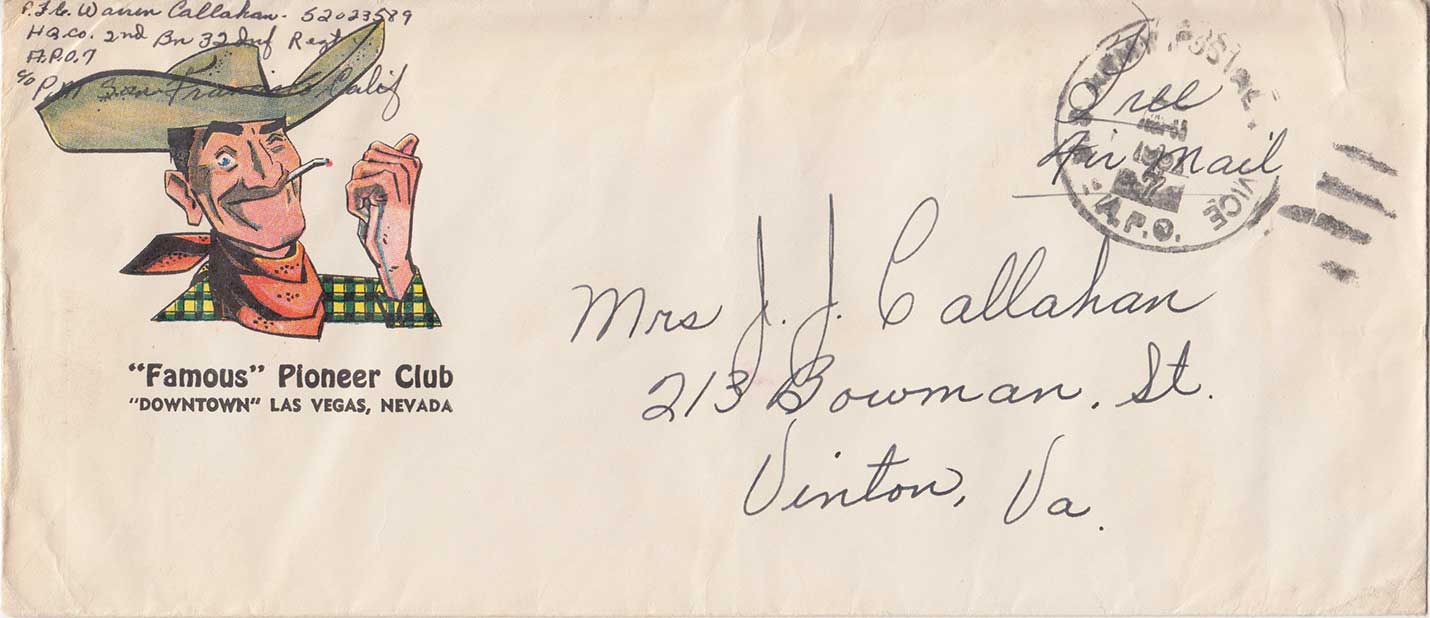 P.F.C. Warren Callahan. 52023589
HQ.Co. 2nd Bn 32 Inf Regt
A.P.O. 7
c/o P.M San Francisco, Calif
"Famous" Pioneer Club
"DOWNTOWN" LAS VEGAS, NEVADA
Free
Air Mail
POSTAL
VICE
A.P.O.
7
Mrs J. J. Callahan
213 Bowman. St.
Vinton, Va.